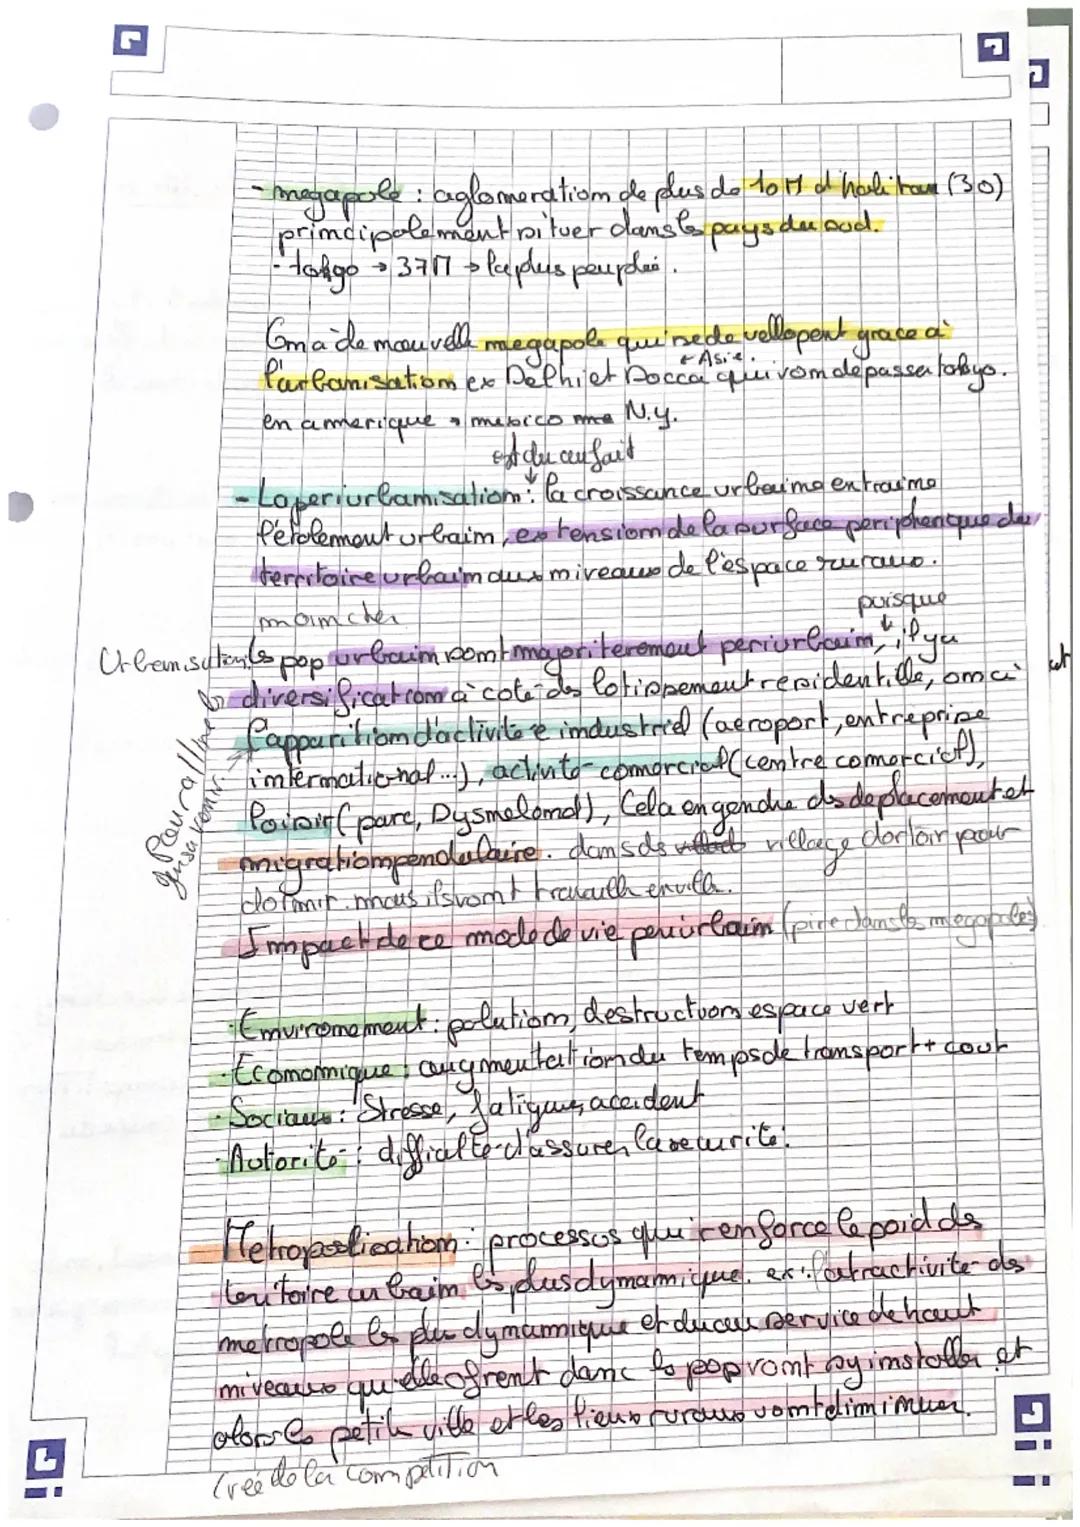 - megapole : aglomeration de plus de 10 M d'habitan (30)
principalement situer dans le pays du sud.
- tokyo → 37M → la plus peuplée.
On a de nouvelle megapole qui se devellopent grace a
← Asie.
l'urbanisation ex Delhi et Docca qui vom depasser tokyo.
en amerique → mexico N.y.
est du au fait
- La periurbanisation : la croissance urbaine entraine
l'étalement urbain, extension de la surface peripherique du
territoire urbain aux niveaux de l'espace ruraux.
moin cher puisque
Urbanisation les pop urbain sont majoriterement periurbain, il y a
diversification à coté des lotissement residentille, on a
l'apparition d'activitée industriel (aeroport, entreprise
international...), activité comercial (centre comercial),
loisir (parc, Dysneland), Cela engendre des deplacement et
migration pendulaire. dans des village dortoir pour
dormir. mais ils vont travaille en ville.
Pour aller
Impact de ce mode de vie periurbain (pire dans les megapoles)
- Enviromement : polution, destruction espace vert
- Economique : augmentation du temps de transport + cout
- Sociaux : Stresse, fatigue, accident
- Autorité : difficulté d'assurer la securité.
Metropolisation : processus qui renforce le poid des
territoire urbain les plus dynamique. ex : l'atractivité des
metropole les plus dynamique et du au service de haut
niveaux qu'elle ofrent donc les pop vont sy installer et
alors les petite ville et les lieux ruraux vont diminuer.
Crée de la compétition